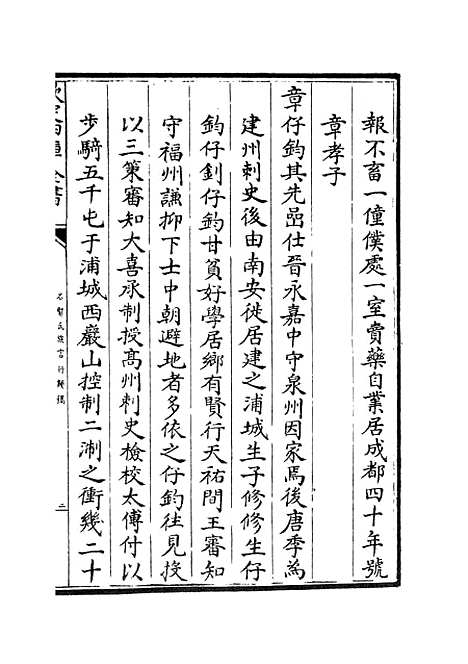 報不畜一僮僕處一室賣藥自業居成都四十年號
章孝子
章仔鈞其先嵒仕晉永嘉中守泉州因家焉後唐季為
建州刺史後由南安徙居建之浦城生子修修生仔
鈞仔釗仔鈞甘貧好學居鄉有賢行天祐間王審知
守福州謙抑下士中朝避地者多依之仔鈞往見投
以三策審知大喜承制授髙州刺史檢校太傅付以
步騎五千屯于浦城西巖山控制二淛之衝幾二十
名賢氏族言行類稿
二